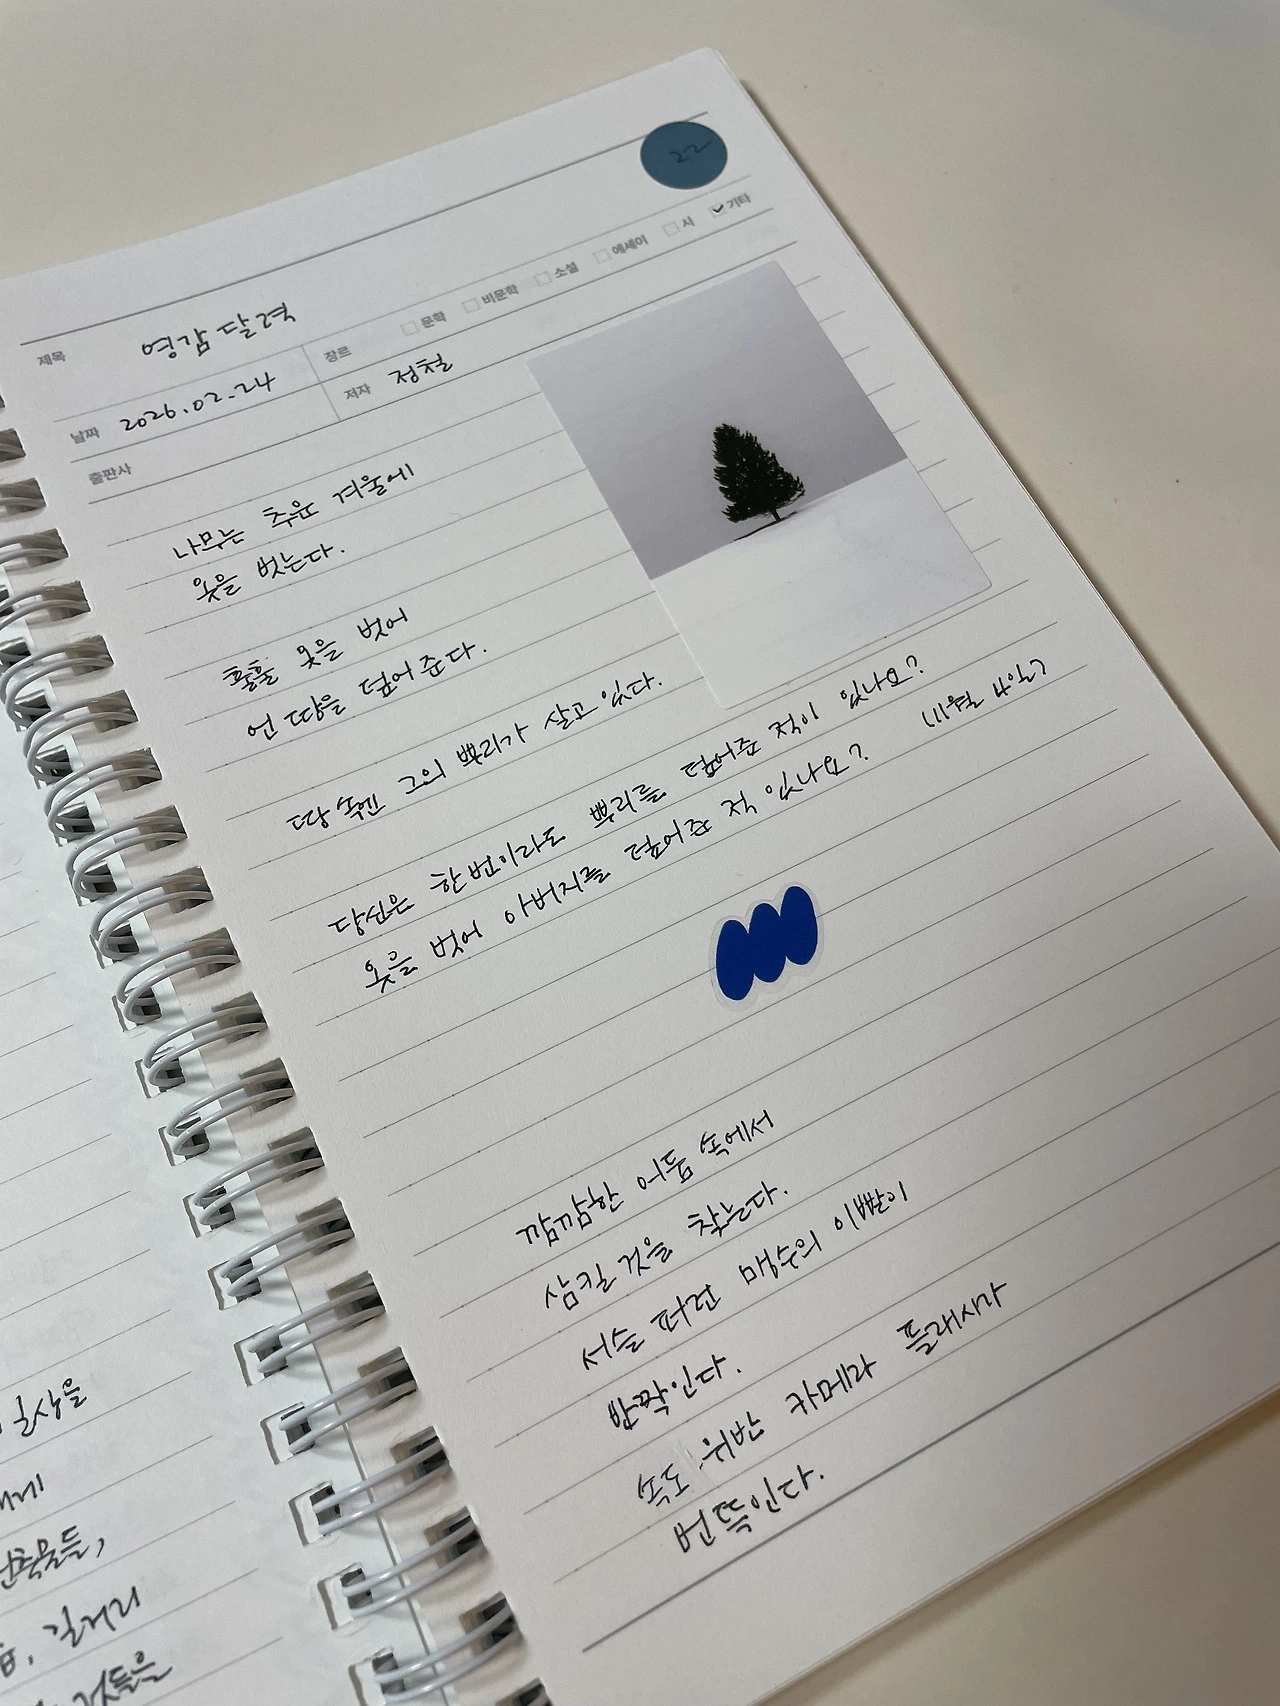 22
제목 영감달력
장르 문학 비문학 소설 에세이 시 기타
날짜 2026.02.24
저자 정철
출판사
나무는 추운 겨울에
옷을 벗는다.
훌훌 옷을 벗어
언 땅을 덮어준다.
땅속엔 그의 뿌리가 살고 있다.
당신은 한번이라도 뿌리를 덮어준 적이 있나요?
옷을 벗어 아버지를 덮어준 적 있나요?
(11월 4일)
깜깜한 어둠 속에서
삼킬 것을 찾는다.
서슬 퍼런 맹수의 이빨이
반짝인다.
속도 위반 카메라 플래시가
번뜩인다.
일상을
에게
건축물들,
길거리
것들을